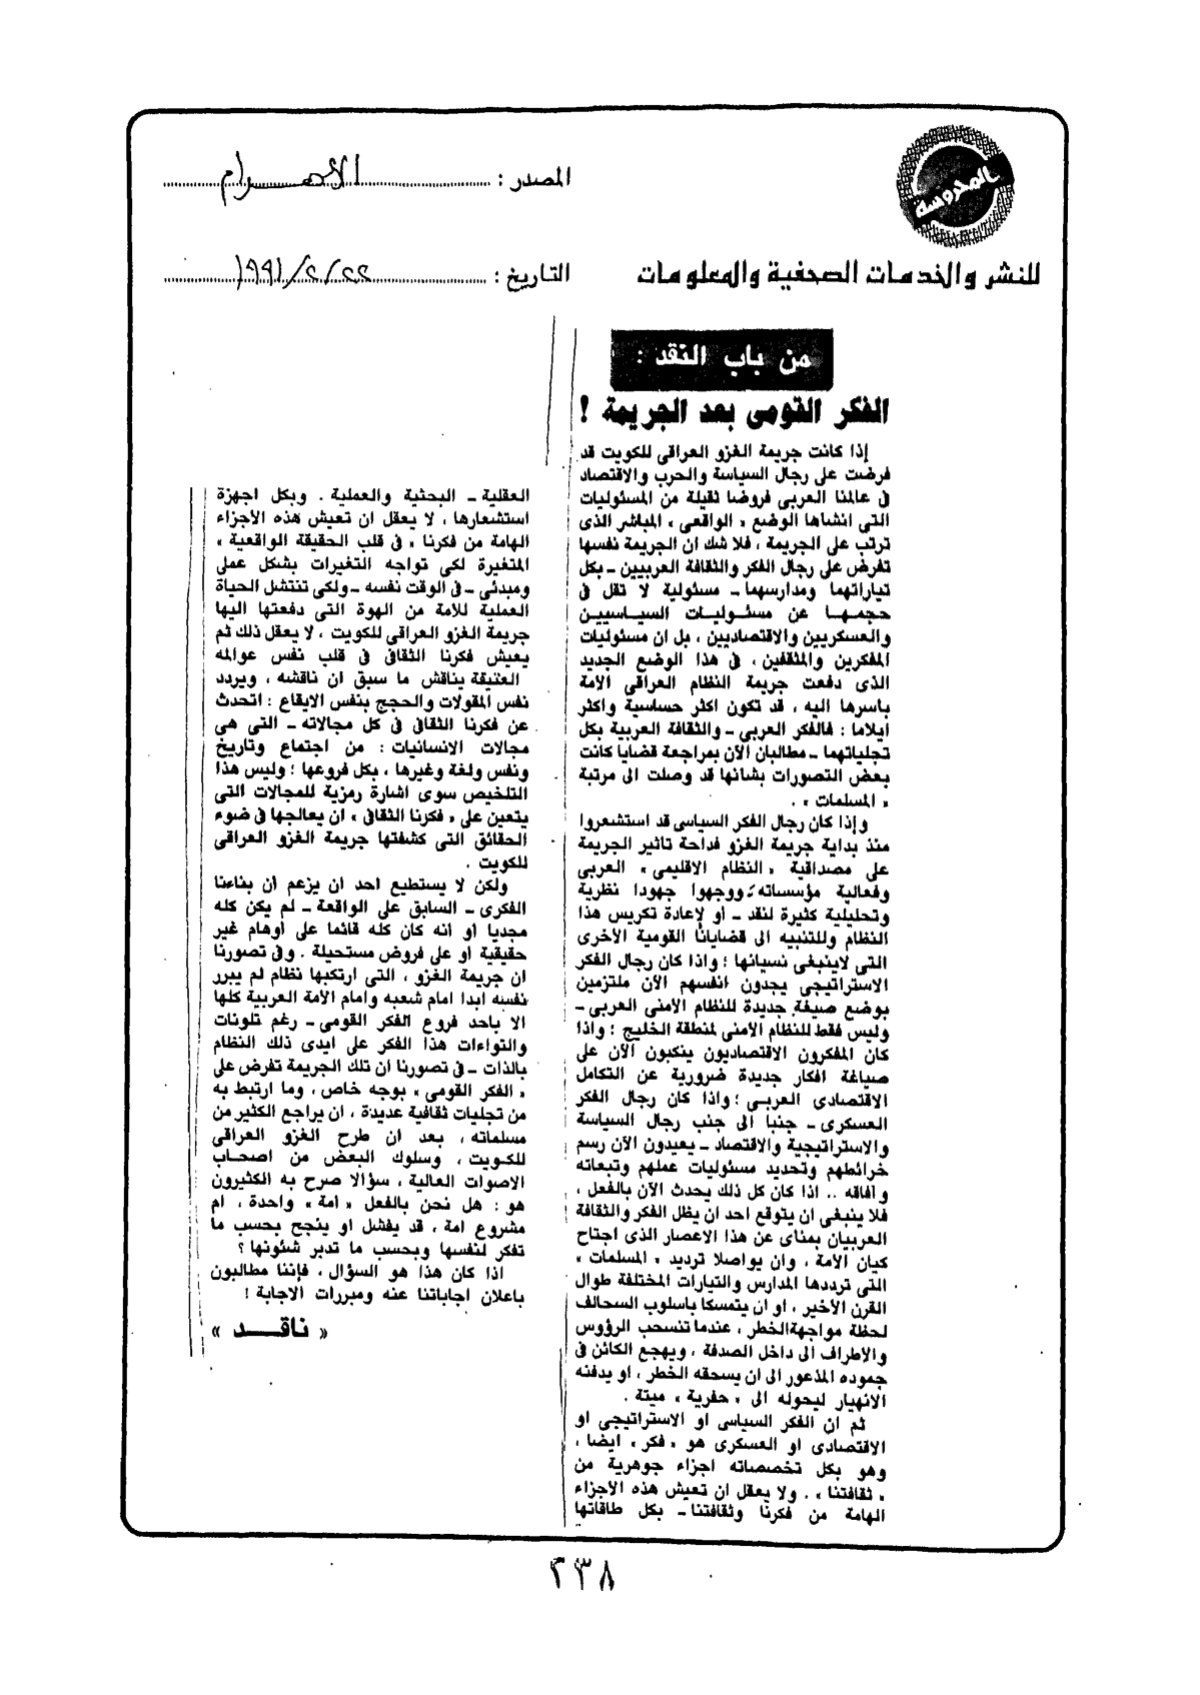 المحروسة
للنشر والخدمات الصحفية والمعلومات
المصدر : الأهرام
التاريخ : ٢٢/٢/١٩٩١
من باب النقد :
الفكر القومى بعد الجريمة !
إذا كانت جريمة الغزو العراقى للكويت قد
فرضت على رجال السياسة والحرب والاقتصاد
فى عالمنا العربى فروضا ثقيلة من المسئوليات
التى انشاها الوضع « الواقعى » المباشر الذى
ترتب على الجريمة ، فلا شك ان الجريمة نفسها
تفرض على رجال الفكر والثقافة العربيين - بكل
تياراتهما ومدارسهما - مسئولية لا تقل فى
حجمها عن مسئوليات السياسيين
والعسكريين والاقتصاديين ، بل ان مسئوليات
المفكرين والمثقفين ، فى هذا الوضع الجديد
الذى دفعت جريمة النظام العراقى الامة
باسرها اليه ، قد تكون اكثر حساسية واكثر
ايلاما : فالفكر العربى - والثقافة العربية بكل
تجلياتهما - مطالبان الآن بمراجعة قضايا كانت
بعض التصورات بشانها قد وصلت الى مرتبة
« المسلمات » .
وإذا كان رجال الفكر السياسى قد استشعروا
منذ بداية جريمة الغزو فداحة تاثير الجريمة
على مصداقية « النظام الاقليمى » العربى
وفعالية مؤسساته ؛ ووجهوا جهودا نظرية
وتحليلية كثيرة لنقد - أو لإعادة تكريس هذا
النظام وللتنبيه الى قضايانا القومية الأخرى
التى لاينبغى نسيانها ؛ واذا كان رجال الفكر
الاستراتيجى يجدون انفسهم الآن ملتزمين
بوضع صيغة جديدة للنظام الامنى العربى -
وليس فقط للنظام الامنى لمنطقة الخليج ؛ واذا
كان المفكرون الاقتصاديون ينكبون الآن على
صياغة افكار جديدة ضرورية عن التكامل
الاقتصادى العربى ؛ واذا كان رجال الفكر
العسكرى - جنبا الى جنب رجال السياسة
والاستراتيجية والاقتصاد - يعيدون الآن رسم
خرائطهم وتحديد مسئوليات عملهم وتبعاته
وآفاقه .. اذا كان كل ذلك يحدث الآن بالفعل ،
فلا ينبغى ان يتوقع احد ان يظل الفكر والثقافة
العربيان بمناى عن هذا الاعصار الذى اجتاح
كيان الأمة ، وان يواصلا ترديد « المسلمات »
التى ترددها المدارس والتيارات المختلفة طوال
القرن الأخير ، او ان يتمسكا باسلوب السحالف
لحظة مواجهةالخطر ، عندما تنسحب الرؤوس
والاطراف الى داخل الصدفة ، ويهجع الكائن فى
جموده المذعور الى ان يسحقه الخطر ، او يدفنه
الانهيار ليحوله الى « حفرية » ميتة .
ثم ان الفكر السياسى او الاستراتيجى او
الاقتصادى او العسكرى هو « فكر » ايضا ،
وهو بكل تخصصاته اجزاء جوهرية من
« ثقافتنا » . ولا يعقل ان تعيش هذه الأجزاء
الهامة من فكرنا وثقافتنا - بكل طاقاتها
العقلية - البحثية والعملية . وبكل اجهزة
استشعارها ، لا يعقل ان تعيش هذه الأجزاء
الهامة من فكرنا « فى قلب الحقيقة الواقعية »
المتغيرة لكى تواجه التغيرات بشكل عملى
ومبدئى - فى الوقت نفسه - ولكى تنتشل الحياة
العملية للامة من الهوة التى دفعتها اليها
جريمة الغزو العراقى للكويت ، لا يعقل ذلك ثم
يعيش فكرنا الثقافى فى قلب نفس عوالمه
العتيقة يناقش ما سبق ان ناقشه ، ويردد
نفس المقولات والحجج بنفس الايقاع : اتحدث
عن فكرنا الثقافى فى كل مجالاته - التى هى
مجالات الانسانيات : من اجتماع وتاريخ
ونفس ولغة وغيرها ، بكل فروعها ؛ وليس هذا
التلخيص سوى اشارة رمزية للمجالات التى
يتعين على « فكرنا الثقافى » ان يعالجها فى ضوء
الحقائق التى كشفتها جريمة الغزو العراقى
للكويت .
ولكن لا يستطيع احد ان يزعم ان بناءنا
الفكرى - السابق على الواقعة - لم يكن كله
مجديا او انه كان كله قائما على أوهام غير
حقيقية او على فروض مستحيلة . وفى تصورنا
ان جريمة الغزو ، التى ارتكبها نظام لم يبرر
نفسه ابدا امام شعبه وامام الأمة العربية كلها
الا باحد فروع الفكر القومى - رغم تلونات
والتواءات هذا الفكر على ايدى ذلك النظام
بالذات - فى تصورنا ان تلك الجريمة تفرض على
« الفكر القومى » بوجه خاص ، وما ارتبط به
من تجليات ثقافية عديدة ، ان يراجع الكثير من
مسلماته ، بعد ان طرح الغزو العراقى
للكويت ، وسلوك البعض من اصحاب
الاصوات العالية ، سؤالا صرح به الكثيرون
هو : هل نحن بالفعل « امة » واحدة ، ام
مشروع امة ، قد يفشل او ينجح بحسب ما
تفكر لنفسها وبحسب ما تدبر شئونها ؟
اذا كان هذا هو السؤال ، فإننا مطالبون
باعلان اجاباتنا عنه ومبررات الاجابة !
« ناقـــد »
٢٣٨